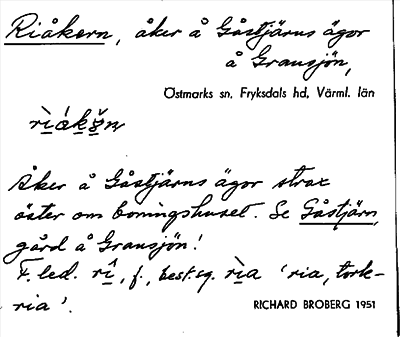 Riåkern, åker å Gåstjärns ägor
å Gransjön,
Östmarks sn, Fryksdals hd, Värml. län
rìákǝ̀n
Åker å Gåstjärns ägor strax
öster om boningshuset. Se Gåstjärn,
gård å Gransjön!
F. led. rî, f., best. sg. rìa 'ria, tork-
ria'.
RICHARD BROBERG 1951